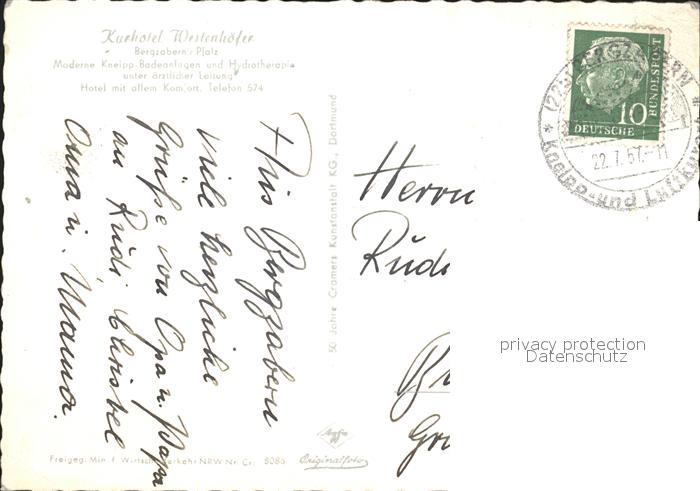 Kurhotel Westenhöfer
Bergzabern/Pfalz
Moderne Kneipp-Badeanlagen und Hydrotherapie
unter ärztlicher Leitung
Hotel mit allem Komfort. Telefon 524
Aus Bergzabern
viele herzliche
Grüße von Opa u. Papa
an Rudi, Christel
Oma u. Mama.
50 Jahre Cramers Kunstanstalt KG., Dortmund
Herrn
Rud
Gr
10
DEUTSCHE
BUNDESPOST
BERGZABERN
22.7.57.-11
* Kneipp- und
privacy protection
Datenschutz
Agfa
Originalfoto
Freigeg. Min. f. Wirtsch. Verkehr NRW Nr. Cr. 5086